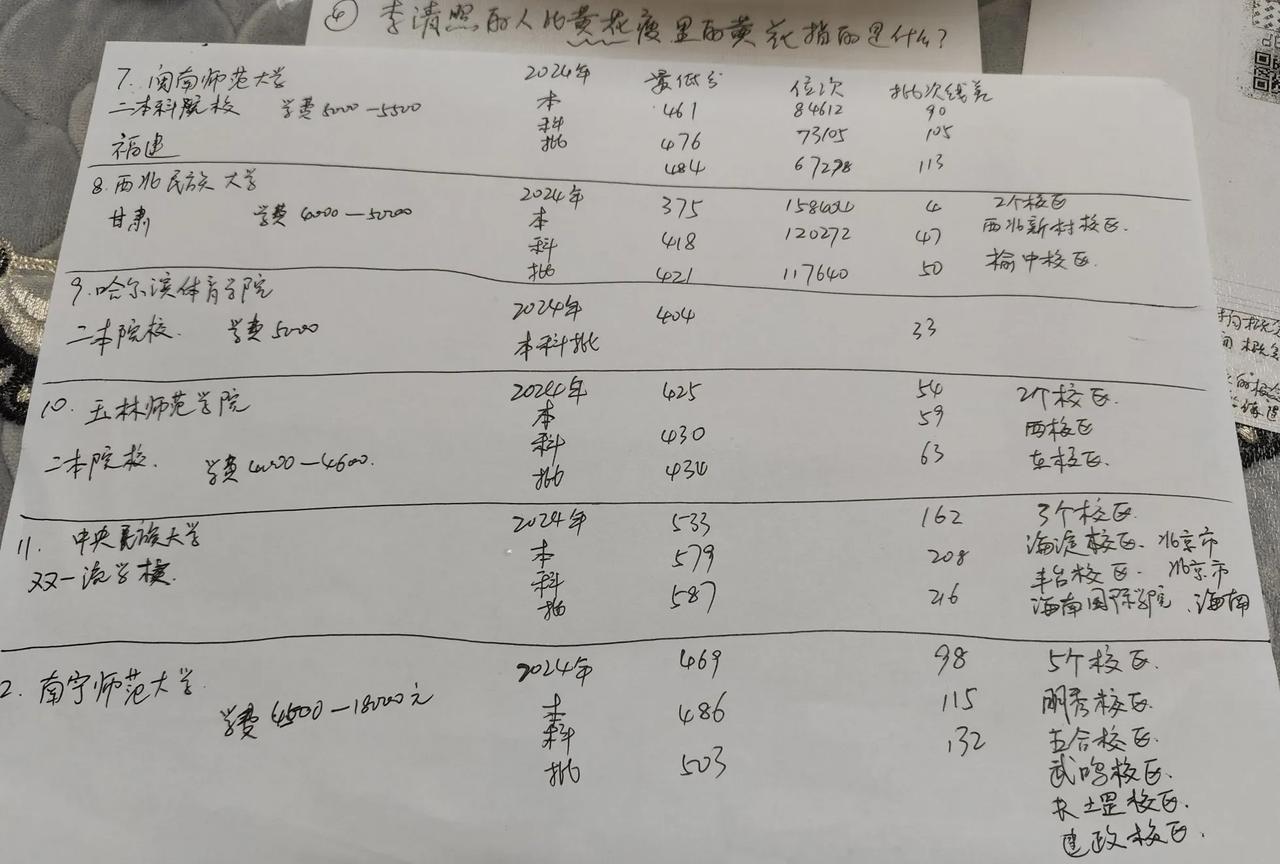 ④ 李清照的人比黄花瘦里的黄花指的是什么?
7. 闽南师范大学 2024年 最低分 位次 批次线差
二本科院校 学费5000—5500 本 461 84612 90
科 476 73105 105
福建 批 484 67298 113
8. 西北民族大学 2024年 375 2个校区
甘肃 学费4000—5000 本 4 西北新村校区.
科 418 120272 47
批 421 117640 50 榆中校区.
9. 哈尔滨体育学院 2024年 404
二本院校. 学费5000 本科批 33
10. 玉林师范学院 2024年 425 54 2个校区.
本 430 59 西校区
二本院校. 学费4000—4600. 科 434 63 东校区.
批
11. 中央民族大学 2024年 533 162 3个校区.
双一流学校. 本 579 208 海淀校区. 北京市
科 587 216 丰台校区. 北京市
批 海南国际学院. 海南
2. 南宁师范大学. 2024年 469 98 5个校区.
学费4500—18000元 本 486 115 明秀校区.
科 503 132 五合校区.
批 武鸣校区.
长堽校区.
建政校区.